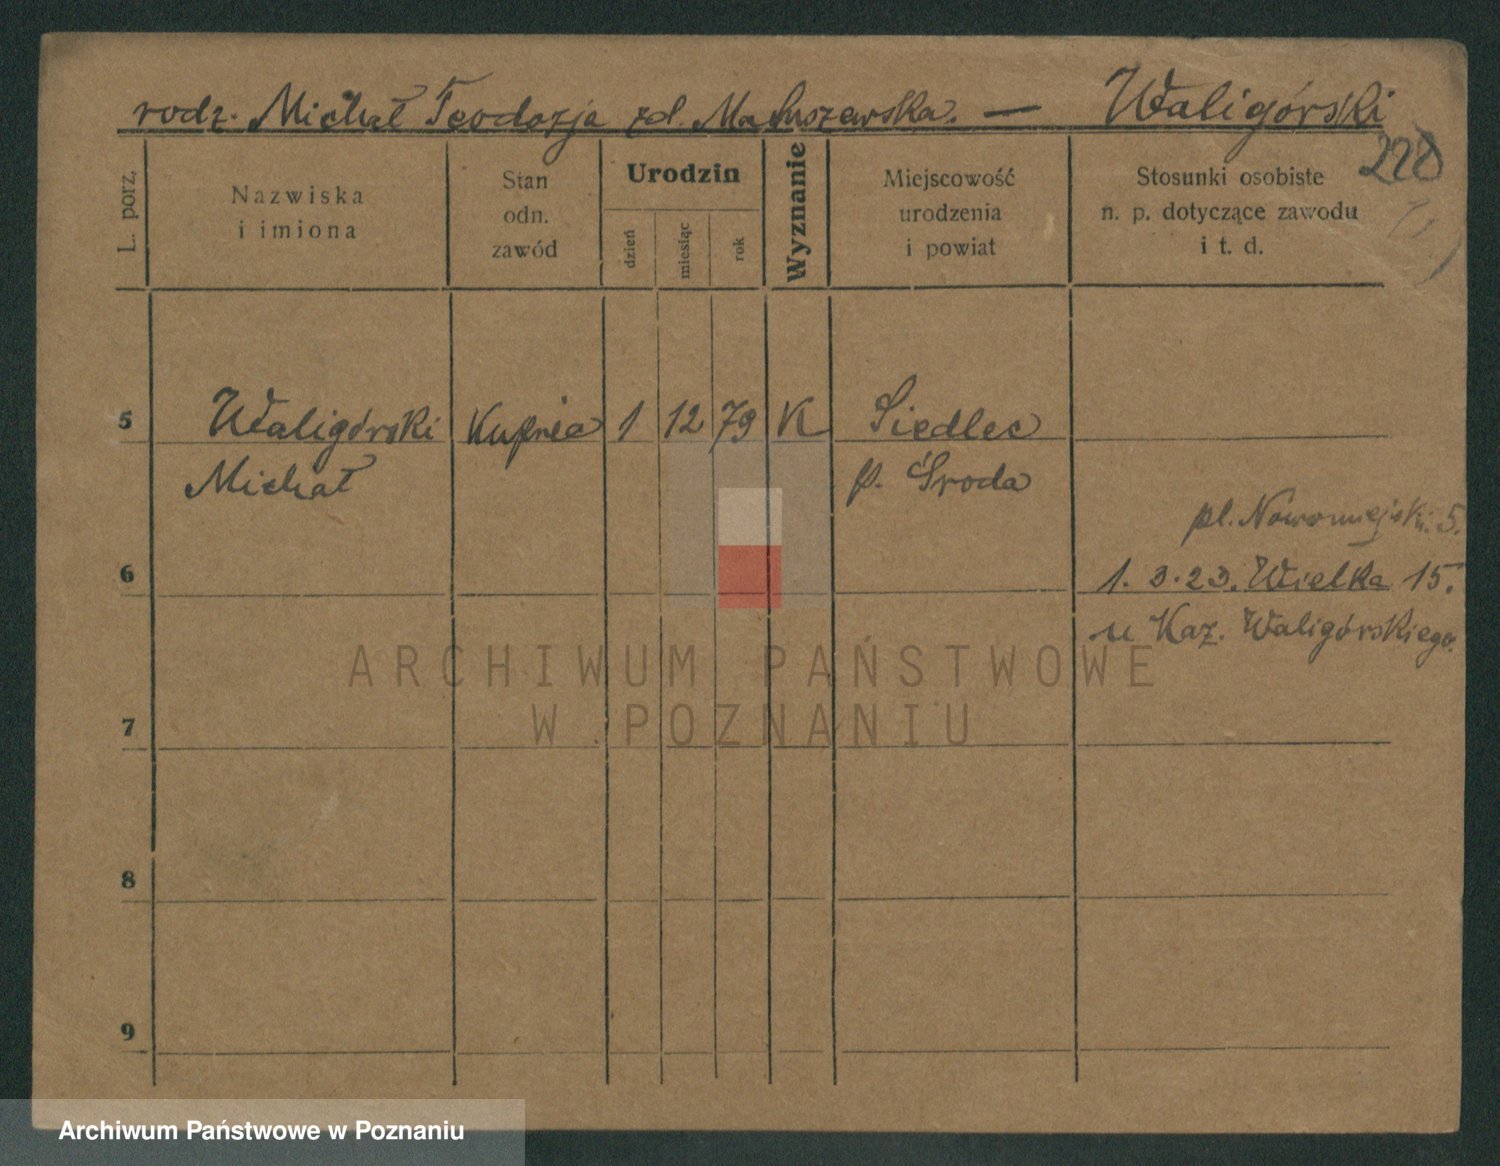 rodz. Michał Teodozja zd. Matuszewska. — Waligórski
228
L. porz.
Nazwiska
i imiona
Stan
odn.
zawód
Urodzin
dzień
miesiąc
rok
Wyznanie
Miejscowość
urodzenia
i powiat
Stosunki osobiste
n. p. dotyczące zawodu
i t. d.
5 Waligórski 1 12 79 K Siedlec
Michał p. Środa
pl. Nowomiejski 5.
6 1. 3. 23. Wielka 15.
u Kaz. Waligórskiego.
ARCHIWUM PAŃSTWOWE
W POZNANIU
7
8
9
Archiwum Państwowe w Poznaniu